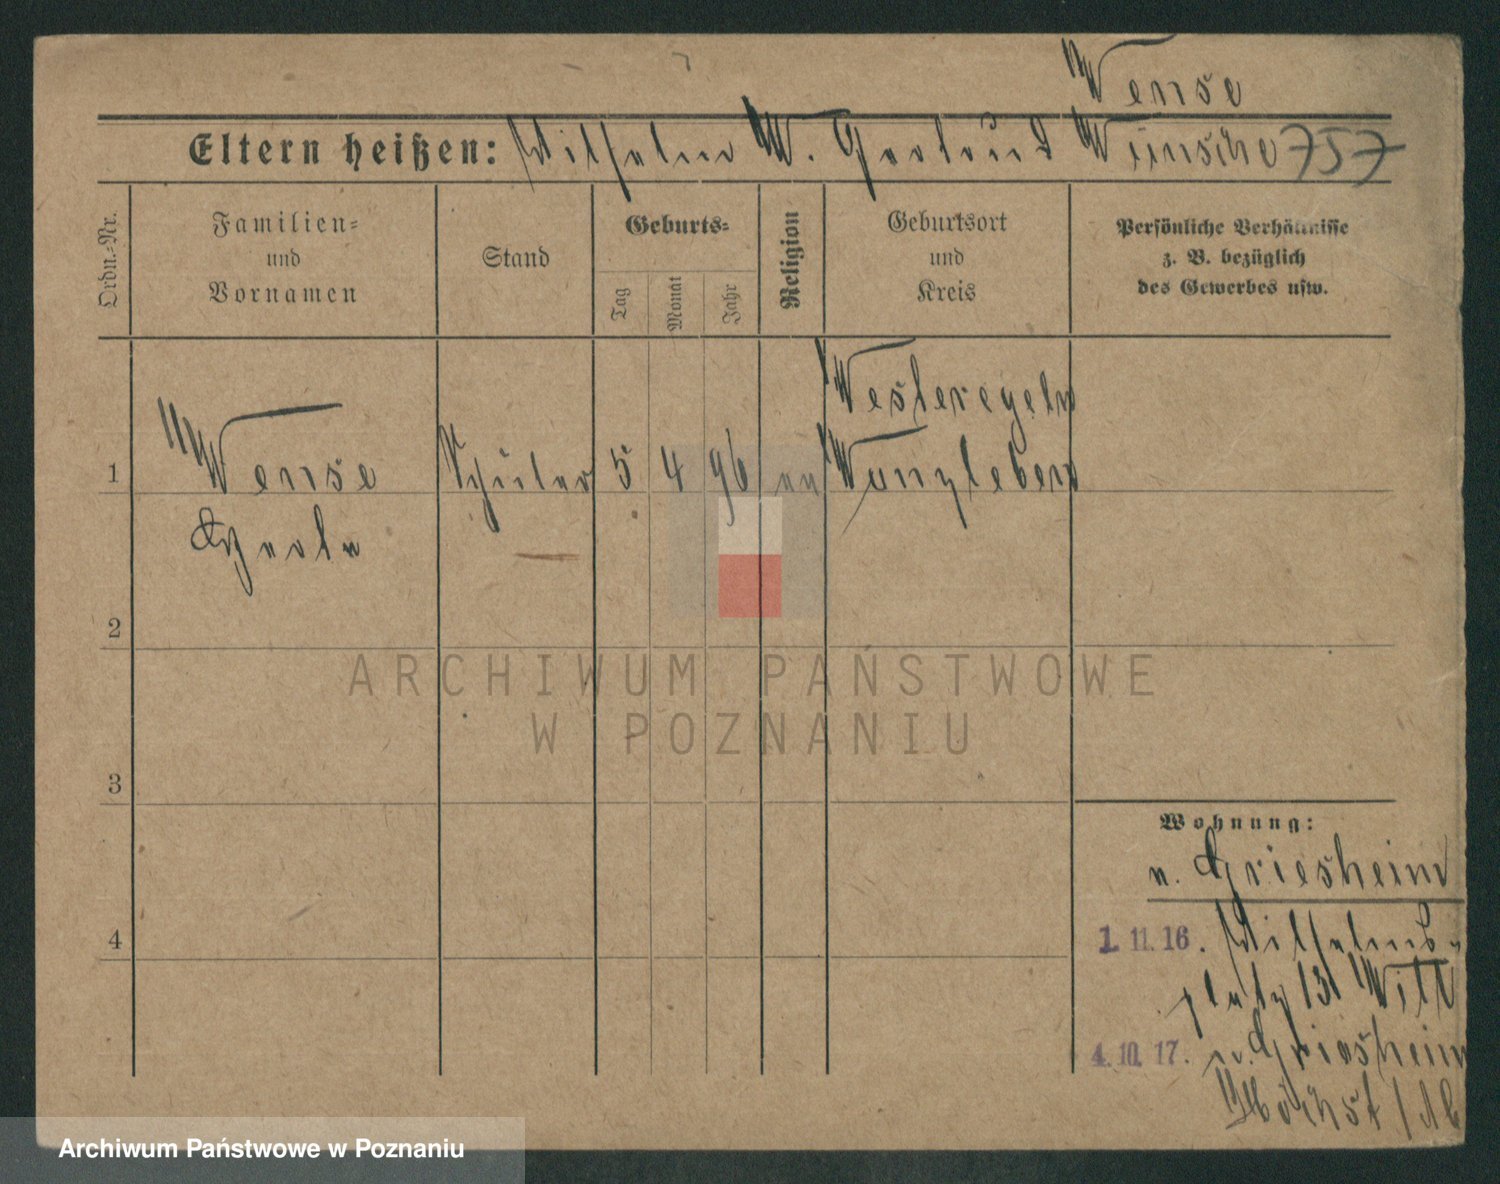 Wense
Eltern heißen: Wilhelm W. Gertrud Wünsche 757
Ordn.-Nr.
Familien-
und
Vornamen
Stand
Geburts-
Tag
Monat
Jahr
Religion
Geburtsort
und
Kreis
Persönliche Verhältnisse
z. B. bezüglich
des Gewerbes usw.
Westeregeln
1 Wense Schüler 5 4 96 ev Wanzleben
2
3
4
Wohnung:
n. Griesheim
1. 11. 16. Wilhelms-
platz 13 Witt
4. 10. 17. n. Griesheim
Höchst
ARCHIWUM PAŃSTWOWE
W POZNANIU
Archiwum Państwowe w Poznaniu